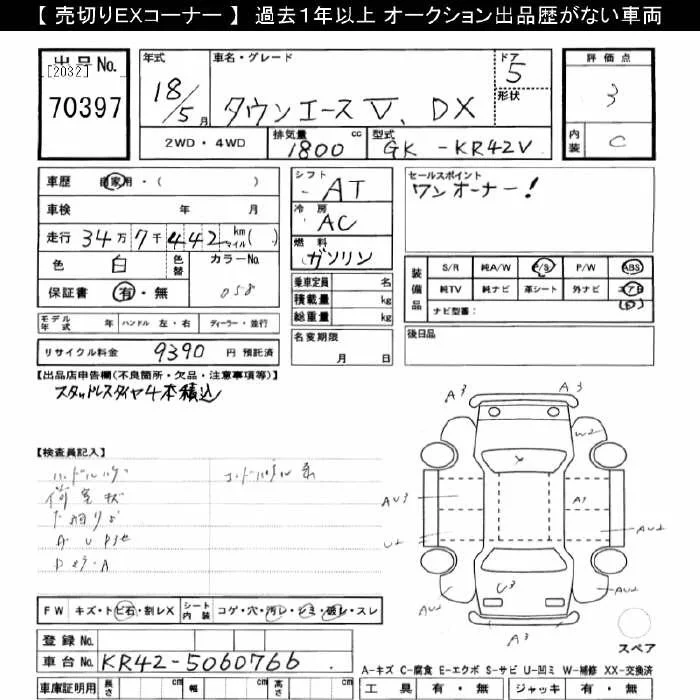 【 売切りEXコーナー 】 過去1年以上 オークション出品歴がない車両
出品No. [2032] 70397
年式 18/5月
車名・グレード タウンエース V, DX
ドア 5
形状
評価点 3
内装 C
2WD・4WD
排気量 1800 cc
型式 GK-KR42V
車歴 自家用・( )
車検 年 月
走行 34万7千442 km マイル( )
色 白 色替 カラーNo. 058
保証書 有・無
シフト AT
冷房 AC
燃料 ガソリン
乗車定員 名
積載量 kg
総重量 kg
セールスポイント
ワンオーナー!
装備品 S/R 純A/W P/S P/W ABS
純TV 純ナビ 革シート 外ナビ エアB
ナビ型番: (D)
モデル年式 年 ハンドル 左・右 ディーラー・並行
名変期限 月 日
後日品
リサイクル料金 9390 円 預託済
【出品店申告欄(不良箇所・欠品・注意事項等)】
スタッドレスタイヤ4本積込
【検査員記入】
A3
A3
W2
X
AU3
A3
AU2
U2
U3
AU2
AU2
A3
スペア
FW キズ・トビ石・割レX シート内装 コゲ・穴・汚レ・シミ・破レ・スレ
登録No.
車台No. KR42-5060766
A-キズ C-腐食 E-エクボ S-サビ U-凹ミ W-補修 XX-交換済
車庫証明用 長さ cm 幅 cm 高さ cm
工具 有・無 ジャッキ 有・無